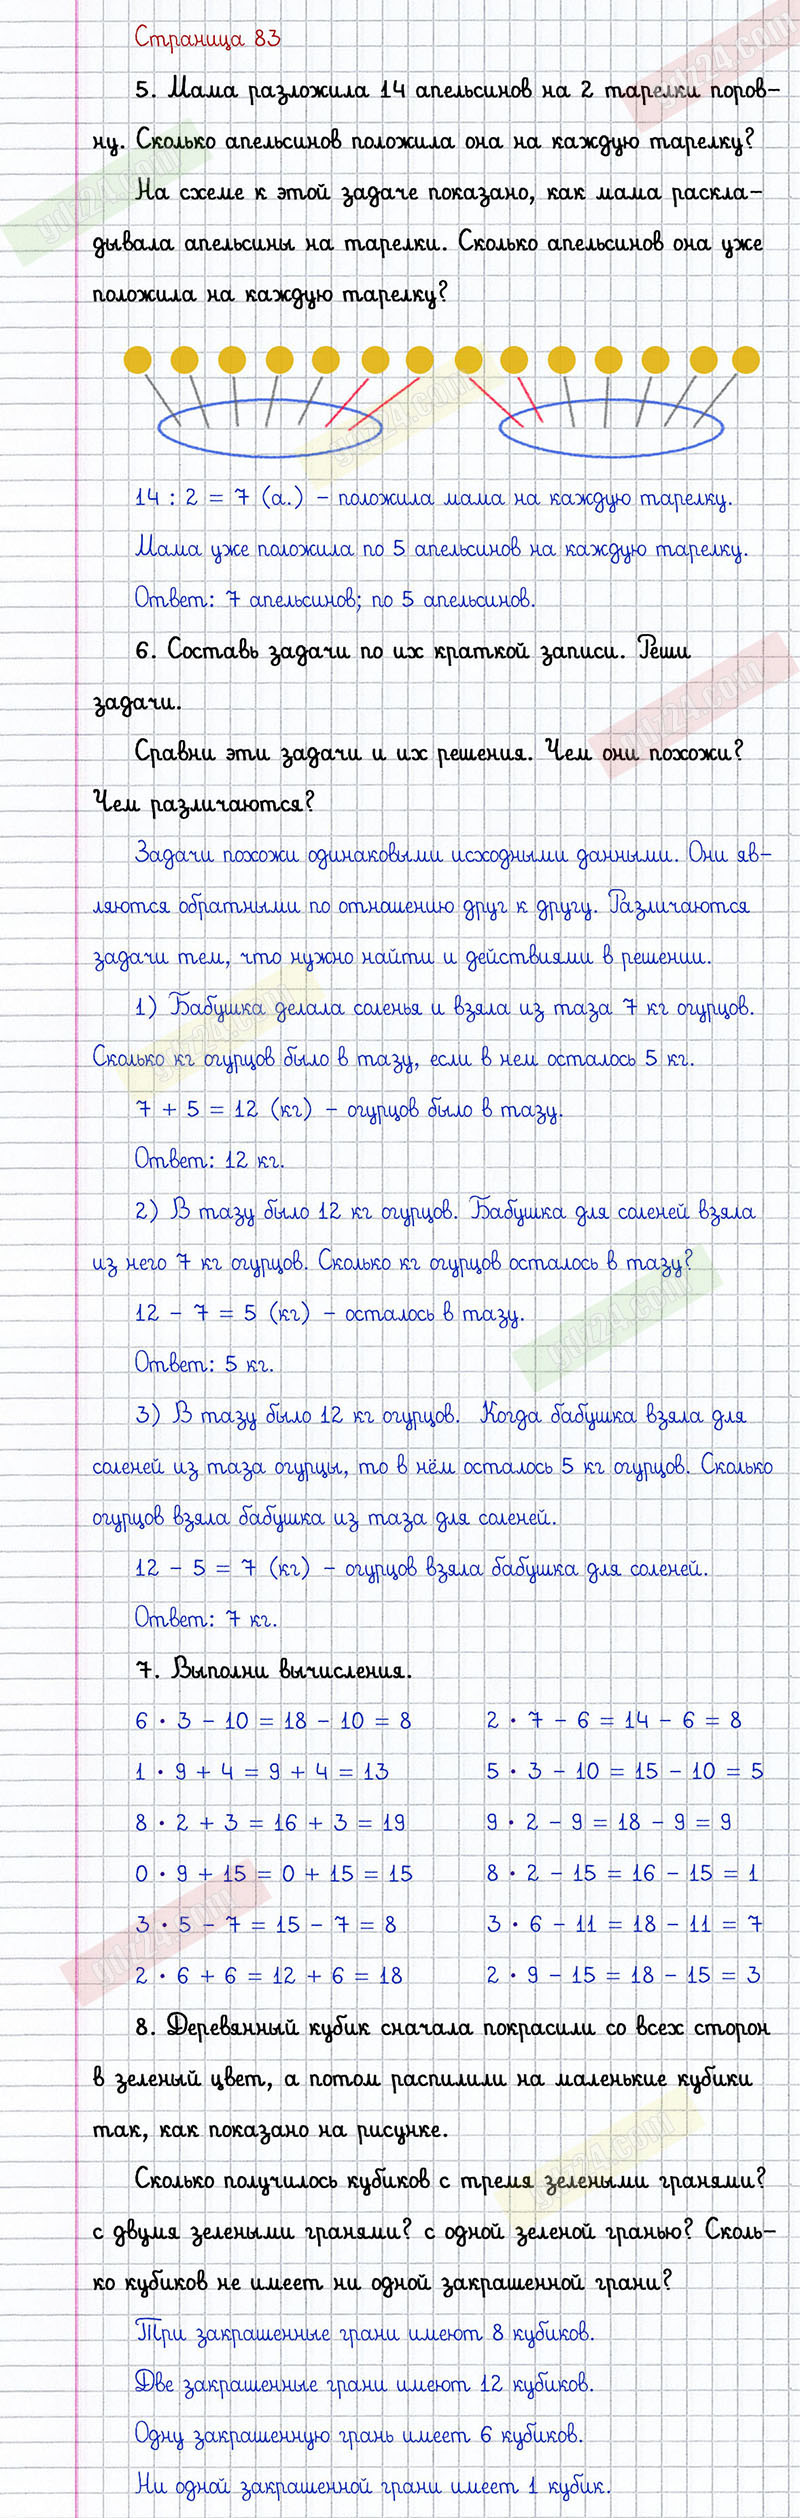 Страница 83
5. Мама разложила 14 апельсинов на 2 тарелки поров-
ну. Сколько апельсинов положила она на каждую тарелку?
На схеме к этой задаче показано, как мама раскла-
дывала апельсины на тарелки. Сколько апельсинов она уже
положила на каждую тарелку?
14 : 2 = 7 (а.) - положила мама на каждую тарелку.
Мама уже положила по 5 апельсинов на каждую тарелку.
Ответ: 7 апельсинов; по 5 апельсинов.
6. Составь задачи по их краткой записи. Реши
задачи.
Сравни эти задачи и их решения. Чем они похожи?
Чем различаются?
Задачи похожи одинаковыми исходными данными. Они яв-
ляются обратными по отношению друг к другу. Различаются
задачи тем, что нужно найти и действиями в решении.
1) Бабушка делала соленья и взяла из таза 7 кг огурцов.
Сколько кг огурцов было в тазу, если в нем осталось 5 кг.
7 + 5 = 12 (кг) - огурцов было в тазу.
Ответ: 12 кг.
2) В тазу было 12 кг огурцов. Бабушка для соленей взяла
из него 7 кг огурцов. Сколько кг огурцов осталось в тазу?
12 - 7 = 5 (кг) - осталось в тазу.
Ответ: 5 кг.
3) В тазу было 12 кг огурцов. Когда бабушка взяла для
соленей из таза огурцы, то в нём осталось 5 кг огурцов. Сколько
огурцов взяла бабушка из таза для соленей.
12 - 5 = 7 (кг) - огурцов взяла бабушка для соленей.
Ответ: 7 кг.
7. Выполни вычисления.
6 · 3 - 10 = 18 - 10 = 8 2 · 7 - 6 = 14 - 6 = 8
1 · 9 + 4 = 9 + 4 = 13 5 · 3 - 10 = 15 - 10 = 5
8 · 2 + 3 = 16 + 3 = 19 9 · 2 - 9 = 18 - 9 = 9
0 · 9 + 15 = 0 + 15 = 15 8 · 2 - 15 = 16 - 15 = 1
3 · 5 - 7 = 15 - 7 = 8 3 · 6 - 11 = 18 - 11 = 7
2 · 6 + 6 = 12 + 6 = 18 2 · 9 - 15 = 18 - 15 = 3
8. Деревянный кубик сначала покрасили со всех сторон
в зеленый цвет, а потом распилили на маленькие кубики
так, как показано на рисунке.
Сколько получилось кубиков с тремя зелеными гранями?
с двумя зелеными гранями? с одной зеленой гранью? Сколь-
ко кубиков не имеет ни одной закрашенной грани?
Три закрашенные грани имеют 8 кубиков.
Две закрашенные грани имеют 12 кубиков.
Одну закрашенную грань имеет 6 кубиков.
Ни одной закрашенной грани имеет 1 кубик.
gdz24.com
gdz24.com
gdz24.com
gdz24.com
gdz24.com
gdz24.com
gdz24.com
gdz24.com